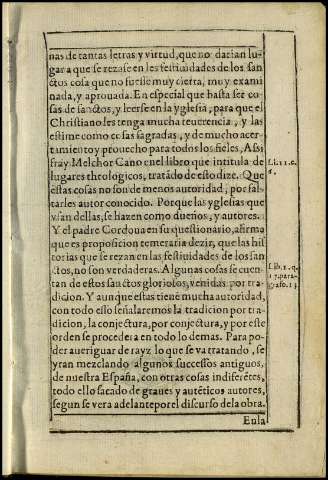 nas de tantas letras y virtud, que no darian lu-
gar a que se rezase en las festiuidades de los san
ctos cosa que no fuesse muy cierta, muy exami
nada, y aprouada. En especial que basta ser co
sas de sanctos, y leerse en la yglesia, para que el
Christiano les tenga mucha reuerencia, y las
estime como cosas sagradas, y de mucho acer-
tamiento y prouecho para todos los fieles. Assi
fray Melchor Cano en el libro que intitula de
lugares theologicos, tratādo desto dize. Que
estas cosas no son de menos autoridad, por fal-
tarles autor conocido. Porque las yglesias que
vsan dellas, se hazen como dueños, y autores.
Y el padre Cordoua en su questionario, afirma
que es proposicion temeraria dezir, que las his
torias que se rezan en las festiuidades de los san
ctos, no son verdaderas. Algunas cosas se cuen-
tan de estos sanctos gloriosos, venidas por tra-
dicion. Y aunque estas tienē mucha autoridad,
con todo ello señalaremos la tradicion por tra-
dicion, la conjectura, por conjectura, y por este
orden se procedera en todo lo demas. Para po-
der aueriguar de rayz lo que se va tratando, se
yran mezclando algunos successos antiguos,
de nuestra España, con otras cosas indiferētes,
todo ello sacado de graues y autēticos autores,
segun se vera adelante por el discurso de la obra.
En la
Li. 11. c.
Lib. 1. q.
17. para-
grafo. 13